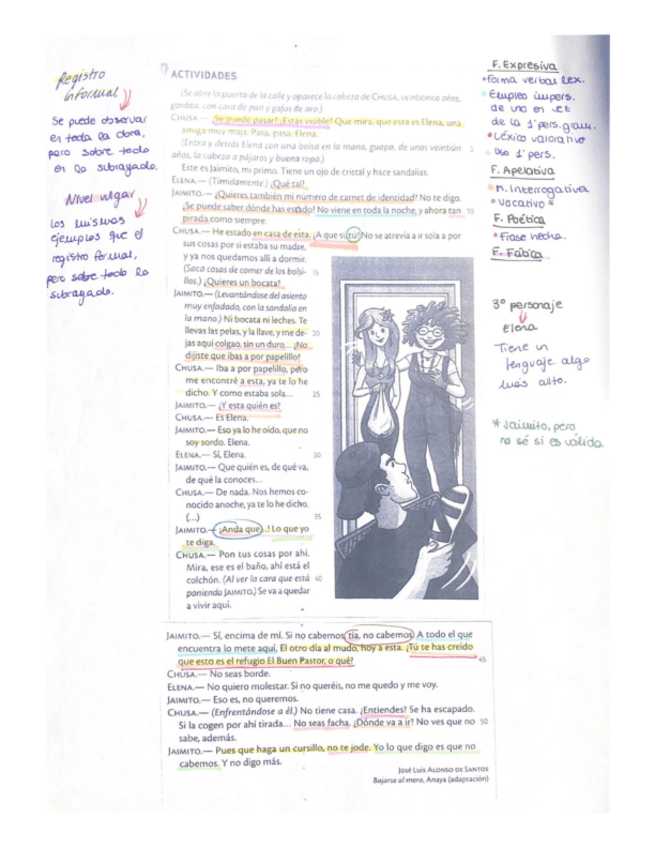 Registro
informal
Se puede observar
en toda la obra,
pero sobre todo
en lo subrayado.
Nivel vulgar
los mismos
ejemplos que el
registro formal,
pero sobre todo lo
subrayado.
ACTIVIDADES
(Se abre la puerta de la calle y aparece la cabeza de CHUSA, veinticinco años,
gordita, con cara de pan y gafas de aro.)
CHUSA.— ¿Se puede pasar? ¿Estás visible? Que mira, que esta es Elena, una
amiga muy maja. Pasa, pasa, Elena.
(Entra y detrás Elena con una bolsa en la mano, guapa, de unos veintiún 5
años, la cabeza a pájaros y buena ropa.)
Este es Jaimito, mi primo. Tiene un ojo de cristal y hace sandalias.
ELENA.— (Tímidamente.) ¿Qué tal?
JAIMITO.— ¿Quieres también mi número de carnet de identidad? No te digo.
¿Se puede saber dónde has estado? No viene en toda la noche, y ahora tan 10
pirada como siempre.
CHUSA.— He estado en casa de esta. ¿A que sí, tú? No se atrevía a ir sola a por
sus cosas por si estaba su madre,
y ya nos quedamos allí a dormir.
(Saca cosas de comer de los bolsi- 15
llos.) ¿Quieres un bocata?
JAIMITO.— (Levantándose del asiento
muy enfadado, con la sandalia en
la mano.) Ni bocata ni leches. Te
llevas las pelas, y la llave, y me de- 20
jas aquí colgao, sin un duro... ¿No
dijiste que ibas a por papelillo?
CHUSA.— Iba a por papelillo, pero
me encontré a esta, ya te lo he
dicho. Y como estaba sola... 25
JAIMITO.— ¿Y esta quién es?
CHUSA.— Es Elena.
JAIMITO.— Eso ya lo he oído, que no
soy sordo. Elena.
ELENA.— Sí, Elena. 30
JAIMITO.— Que quién es, de qué va,
de qué la conoces...
CHUSA.— De nada. Nos hemos co-
nocido anoche, ya te lo he dicho.
(...) 35
JAIMITO.— ¡Anda que..! Lo que yo
te diga.
CHUSA.— Pon tus cosas por ahí.
Mira, ese es el baño, ahí está el
colchón. (Al ver la cara que está 40
poniendo JAIMITO.) Se va a quedar
a vivir aquí.
JAIMITO.— Sí, encima de mí. Si no cabemos, tía, no cabemos. A todo el que
encuentra lo mete aquí. El otro día al mudo, hoy a esta. ¿Tú te has creído
que esto es el refugio El Buen Pastor, o qué? 45
CHUSA.— No seas borde.
ELENA.— No quiero molestar. Si no queréis, no me quedo y me voy.
JAIMITO.— Eso es, no queremos.
CHUSA.— (Enfrentándose a él.) No tiene casa. ¿Entiendes? Se ha escapado.
Si la cogen por ahí tirada... No seas facha. ¿Dónde va a ir? No ves que no 50
sabe, además.
JAIMITO.— Pues que haga un cursillo, no te jode. Yo lo que digo es que no
cabemos. Y no digo más.
JOSÉ LUIS ALONSO DE SANTOS
Bajarse al moro, Anaya (adaptación)
F. Expresiva
*forma verbal lex.
*Empleo impers.
de uno en vez
de la 1ª pers. gram.
*Léxico valorativo
*Uso 1ª pers.
F. Apelativa
*M. Interrogativa
*Vocativo*
F. Poética
*Frase hecha.
F. Fática
3º personaje
Elena
Tiene un
lenguaje algo
más alto.
*Jaimito, pero
no sé si es válido.